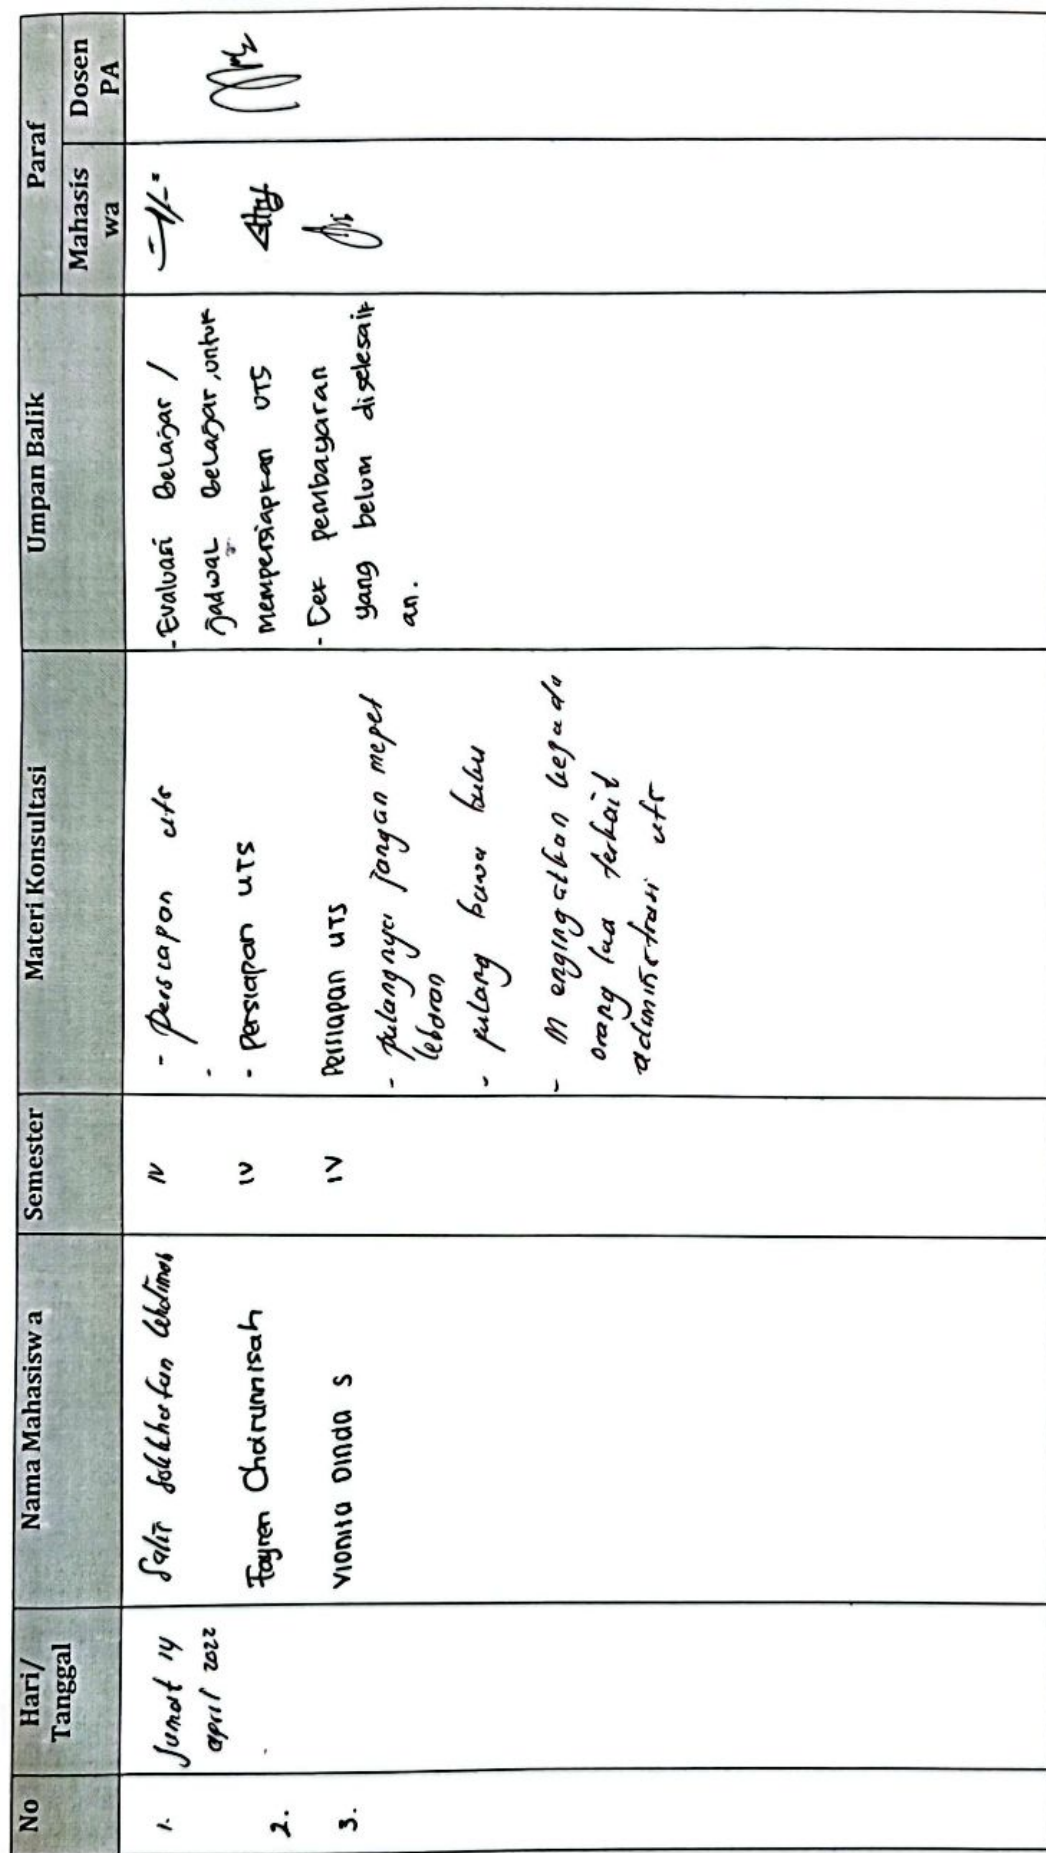 No Hari/ Tanggal Nama Mahasisw a Semester Materi Konsultasi Umpan Balik Paraf
Mahasis wa Dosen PA
1. Jumat 14 april 2022
IV
- persiapan uts
- Evaluasi Belajar /
Jadwal Belajar, untuk
mempersiapkan UTS
- Cek pembayaran
yang belum diselesaik
an.
2. Fayren Choirunnisah IV - Persiapan UTS
3. Vionita Dinda S IV Persiapan UTS
- pulangnya jangan mepet
lebaran
- pulang bawa buku
- Mengingatkan kepada
orang tua terkait
administrasi uts